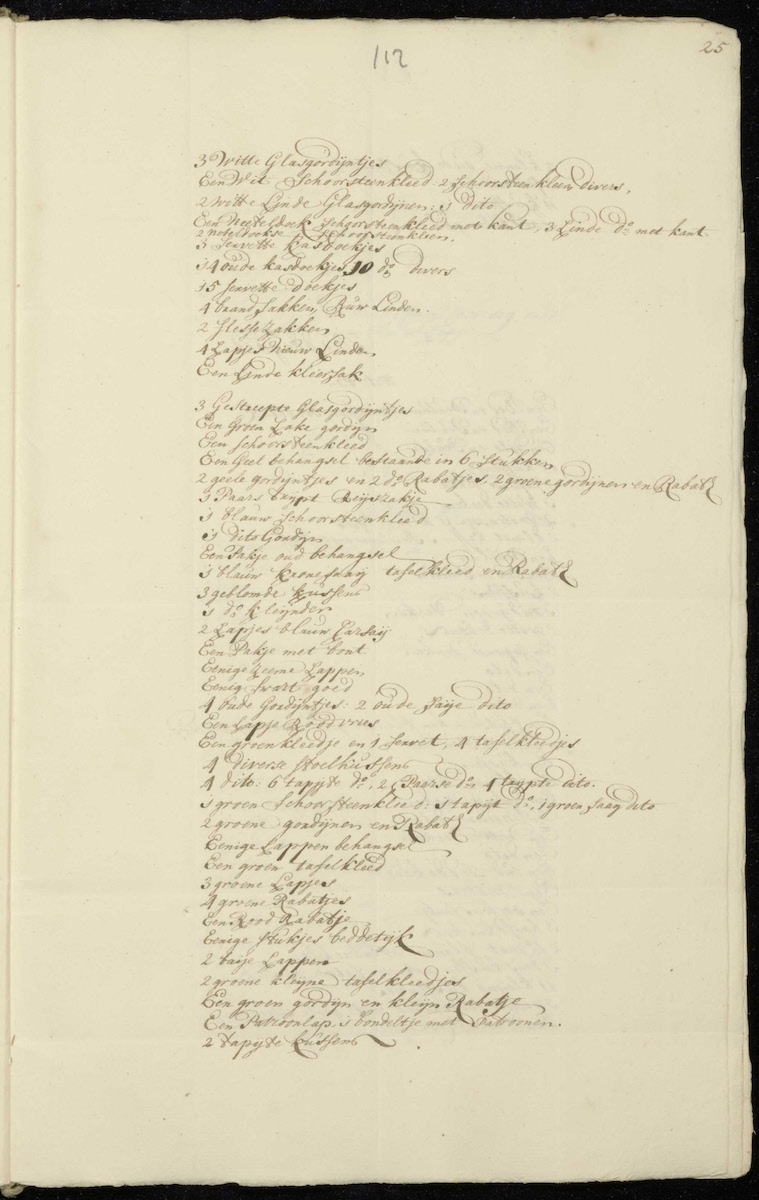 112
25
3 Witte Glasgordijntjes
Een Wit Schoorsteenkleed 2 Schoorsteenkleen divers,
2 witte Linde Glasgordijnen: 1 dito
Een Neeteldoek Schoorsteenkleed met kant, 3 Linde do met kant
2 neteldoekse Schoorsteenkleen,
5 Servette kasdoekjes
14 oude kasdoekjes, 10 do divers
15 servette doekjes
4 brand sakken, Ruw Linden.
2 flesse zakken
4 Lapjes Nieuw Linden
Een Linde kleersak
3 Gestreepte Glasgordijntjes
Een Groen Lake gordijn
Een Schoorsteenkleed
Een Geel behangsel bestaande in 6 Stukken
2 geele gordijntjes en 2 do Rabatjes, 2 groene gordijnen en Rabat
3 Paars trypt Reijszakje
1 blauw Schoorsteenkleed
1 dito Gordijn
Een Pakje oud behangsel
1 blauw tafelkleed en Rabat
3 geblomde kussens
1 do kleijnder
2 Lapjes blauw Carsaij
Een Pakje met bont
Eenige Zeeme Lappen
Eenig swart goed
4 oude Gordijntjes: 2 oude saije dito
Een Lapje Rood vries
Een groen kleedje en 1 Servet, 4 tafelkleedjes
4 diverse stoelkussens
4 dito: 6 tapijte do, 2 Paarse do, 4 trypte dito.
1 groen Schoorsteenkleed: 1 tapijt do, 1 groen saaij dito
2 groene gordijnen en Rabat
Eenige Lappen behangsel
Een groen tafelkleed
3 groene Lapjes
4 groene Rabatjes
Een Rood Rabatje
Eenige stukjes beddetijk
2 baije Lappen
2 groene kleijne tafelkleedjes
Een groen gordijn en kleijn Rabatje
Een Patroonlap 1 bondeltje met Patroonen.
2 tapijte kussens